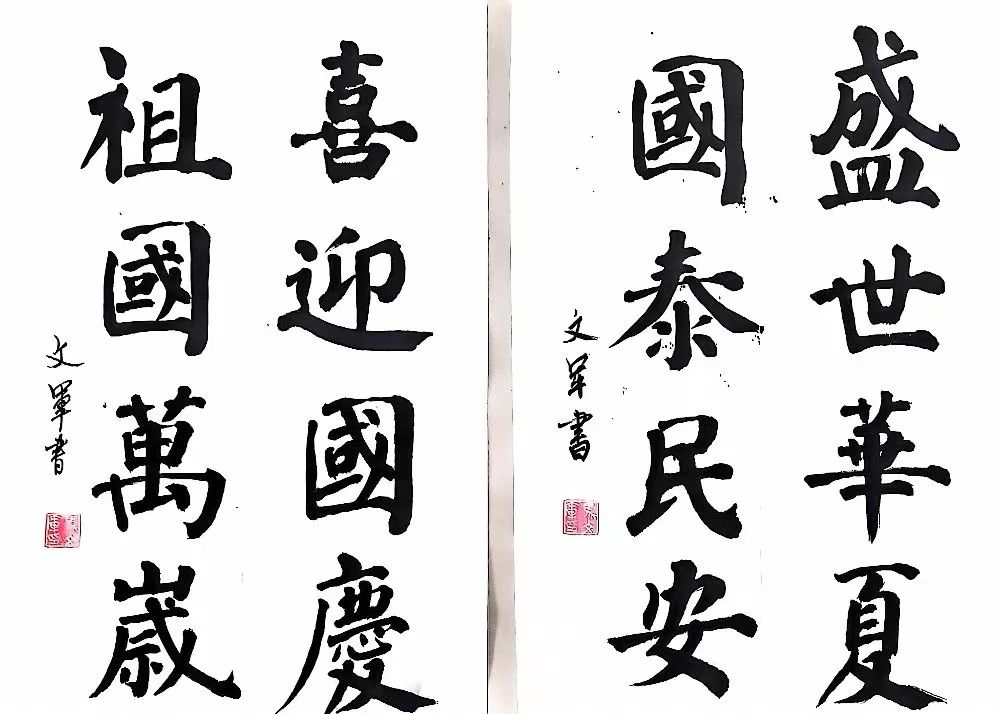 盛世華夏
國泰民安
文軍書
喜迎國慶
祖國萬歲
文軍書